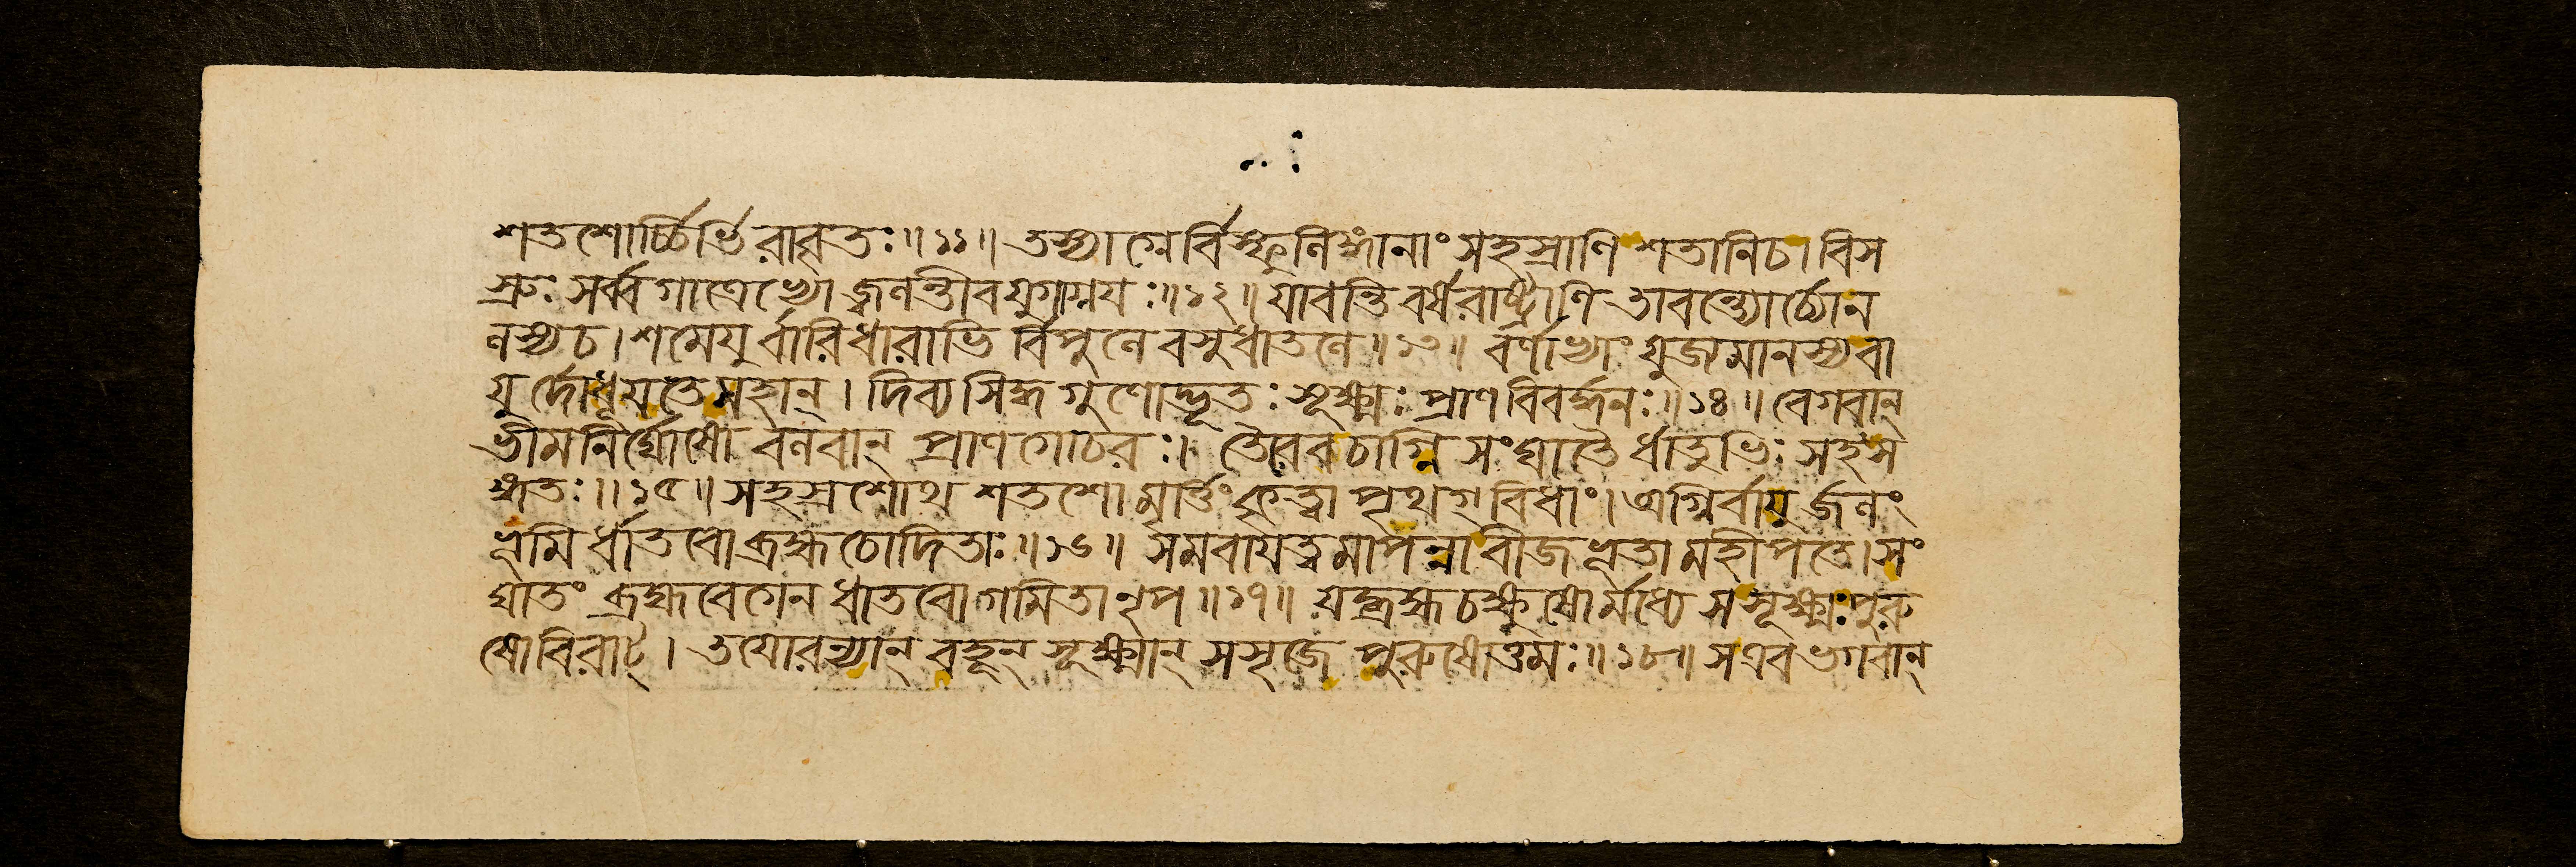 শতশোর্চ্চির্ভিরাবৃতঃ॥১১॥ তস্যাগ্নের্বিস্ফুলিঙ্গানাং সহস্রাণি শতানি চ। বিস
স্রুঃ সর্ব্বগাত্রেভ্যো জ্বলন্তীব যুগাগ্নয়ঃ॥১২॥ যাবন্তি বর্ষরাষ্ট্রাণি তাবন্ত্যোর্চ্চোন
লস্য চ। শমেযুর্বারিধারাভি র্বিপুলে বসুধাতলে॥১৩॥ বর্ণাভ্যাং যুজ্যমানস্য বা
যুর্দোধূযতে মহান্। দিব্যসিদ্ধগুণোদ্ভূতঃ সূক্ষ্মঃ প্রাণবিবর্দ্ধনঃ॥১৪॥ বেগবান্
ভীমনির্ঘোষো বলবান্ প্রাণগোচরঃ। তৈরেব চাগ্নিসংঘাতৈ র্ধাতুভিঃ সহ স
ঙ্গতঃ॥১৫॥ সহস্রশোথ শতশো মূর্ত্তিং কৃত্বা পৃথগ্বিধাং। অগ্নির্বাযুর্জলং
ভূমি র্ধাতবো ব্রহ্মচোদিতাঃ॥১৬॥ সমবাযত্বমাপন্না বীজভূতা মহীপতে। সং
ঘাতং ব্রহ্মবেগেন ধাতবো গমিতা নৃপ॥১৭॥ যদ্ব্রহ্ম চক্ষুষোর্মধ্যে স সূক্ষ্মঃ পুরু
ষো বিরাট্। তযোরন্যান্ বহূন্ সূক্ষ্মান্ সসৃজে পুরুষোত্তমঃ॥১৮॥ স এব ভগবান্